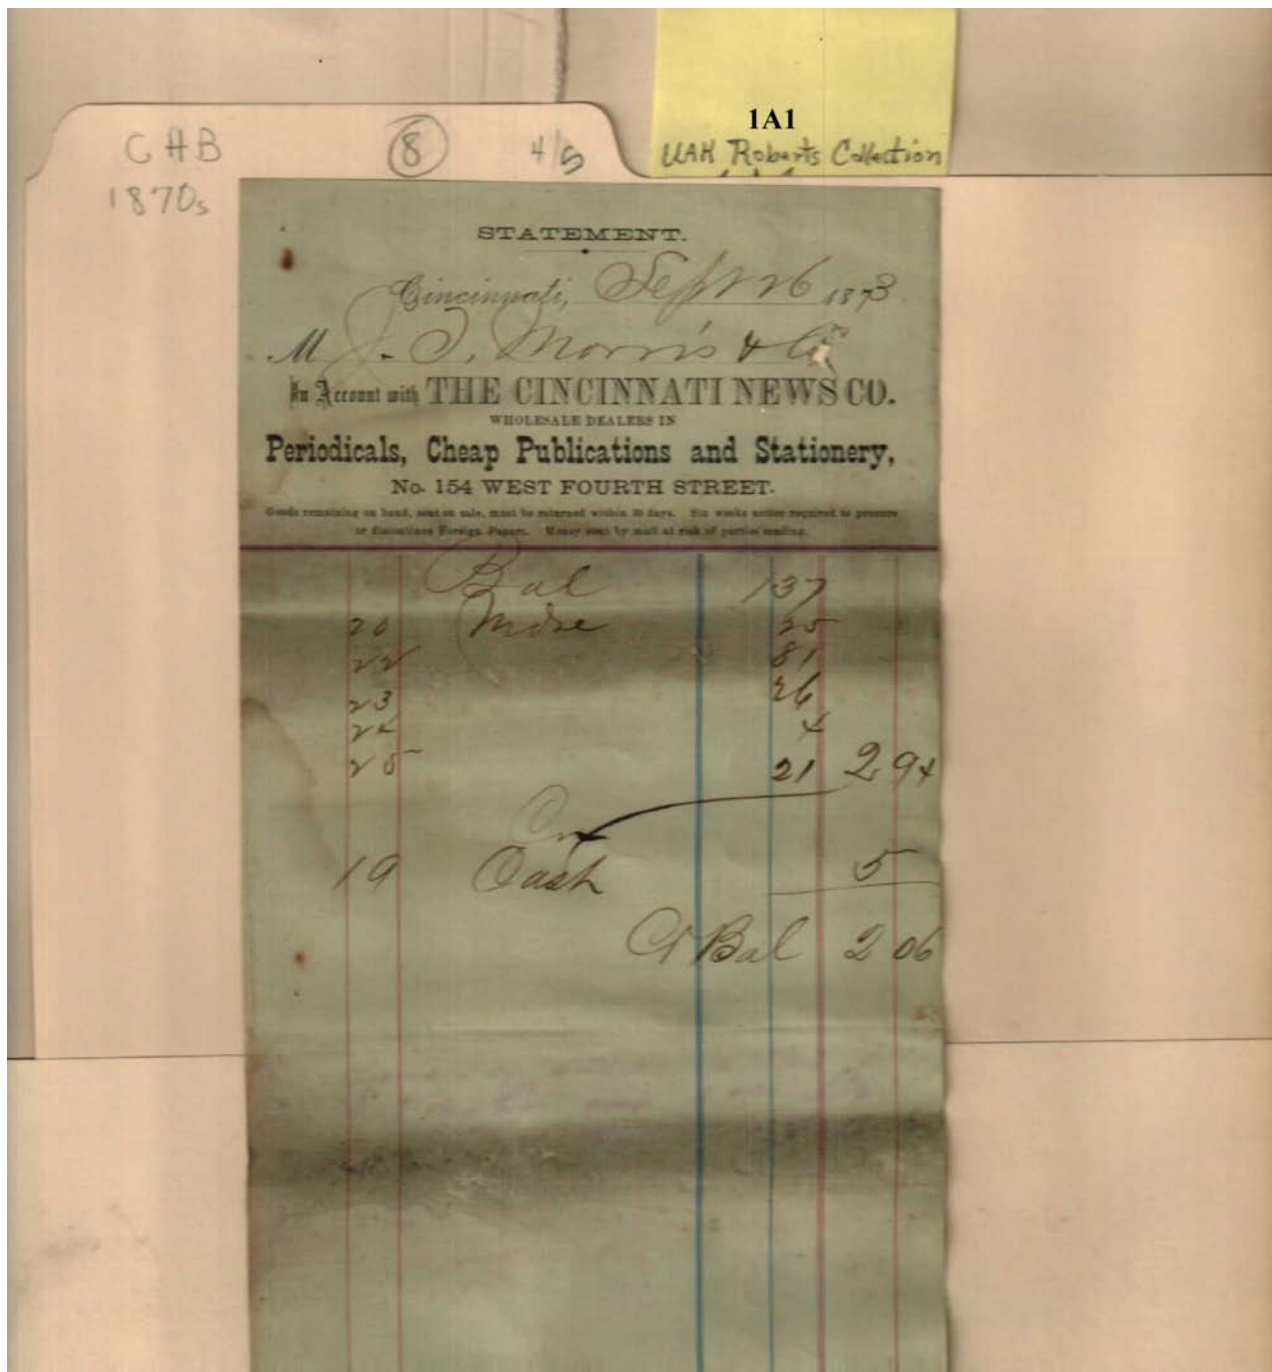 1A1
CHB ⑧ 4/5 UAH Roberts Collection
1870s
STATEMENT.
Cincinnati, Sept 26 1873
M J. T. Morris & Co
In Account with THE CINCINNATI NEWS CO.
WHOLESALE DEALERS IN
Periodicals, Cheap Publications and Stationery,
No. 154 WEST FOURTH STREET.
Goods remaining on hand, sent on sale, must be returned within 30 days. Six weeks notice required to procure
or discontinue Foreign Papers. Money sent by mail at risk of parties sending.
Bal 137
20 Mdse 25
22 81
23 26
24 4
25 21 2 94
Cr
19 Cash 5
Cr Bal 2 06